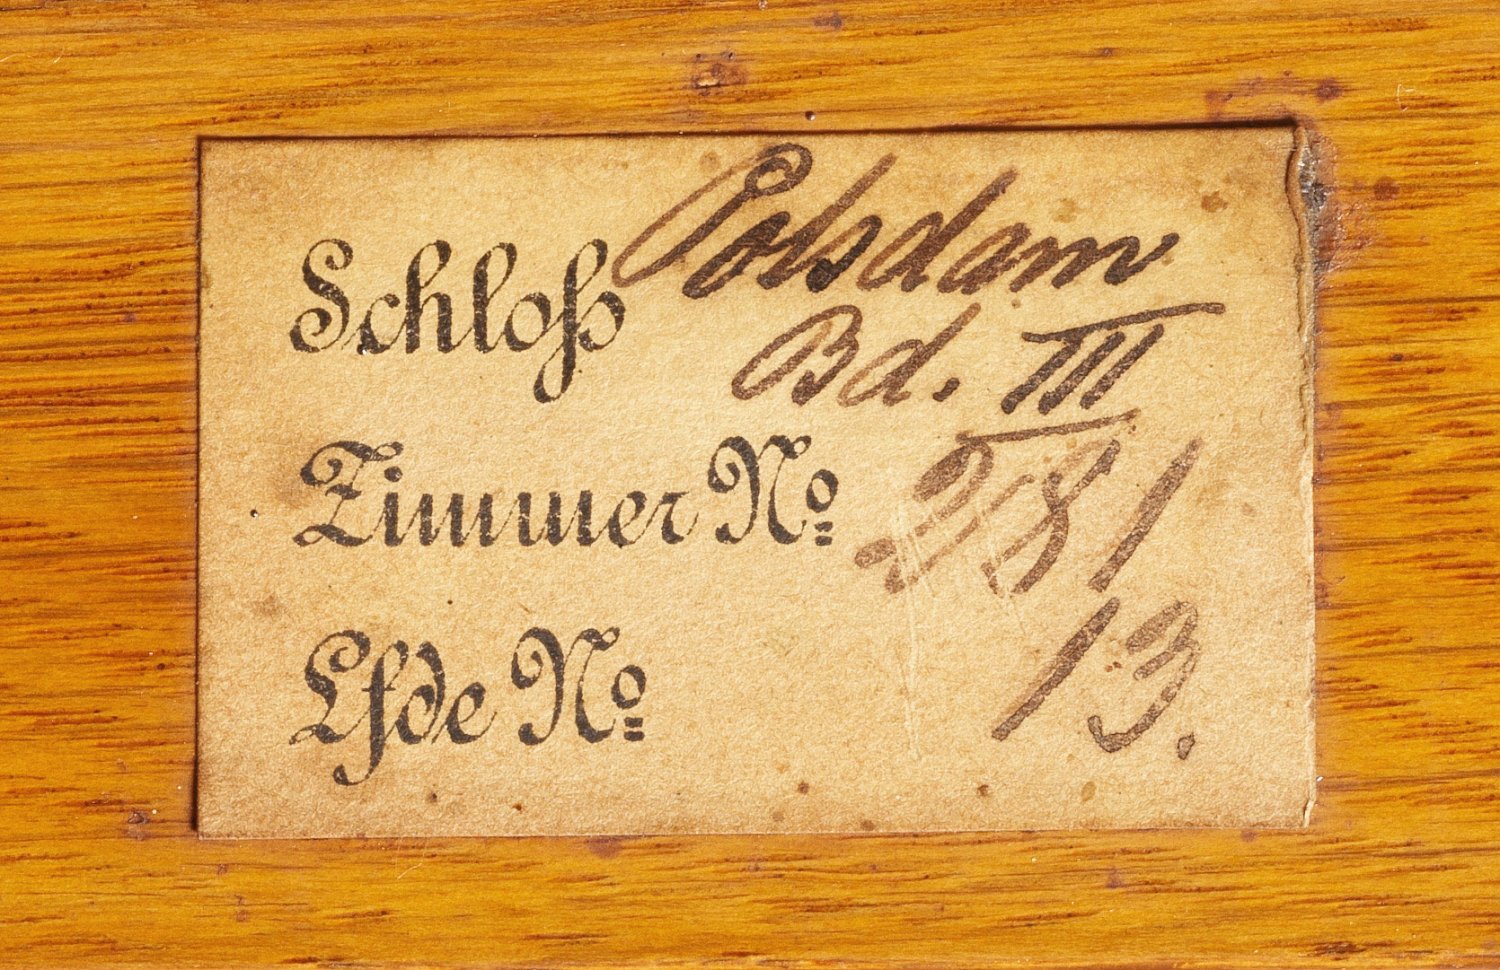 Schloß Potsdam
Bd. III
Zimmer No 281
Lfde No 13.